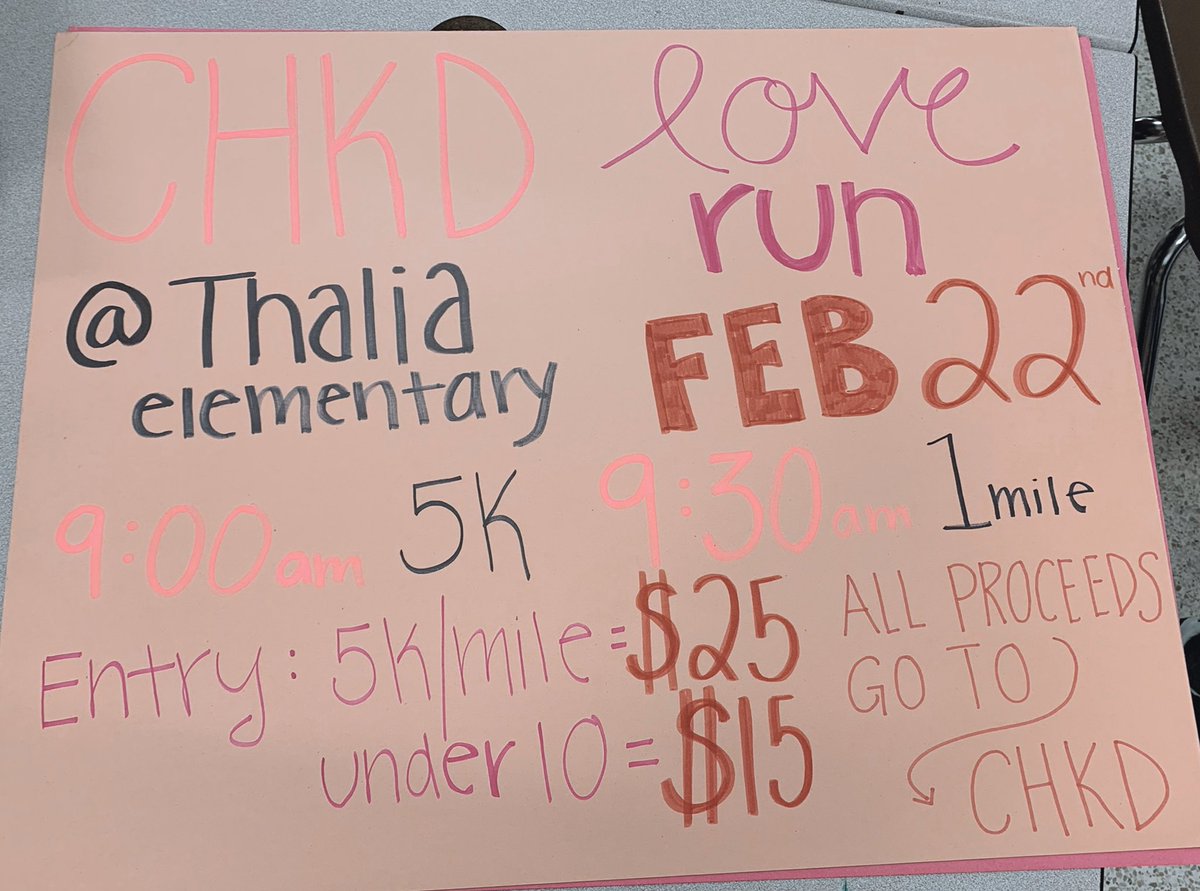 CHKD love
run
@Thalia
elementary
FEB 22nd
9:00am 5K
9:30am 1 mile
Entry: 5K/mile = $25
under 10 = $15
ALL PROCEEDS
GO TO
CHKD